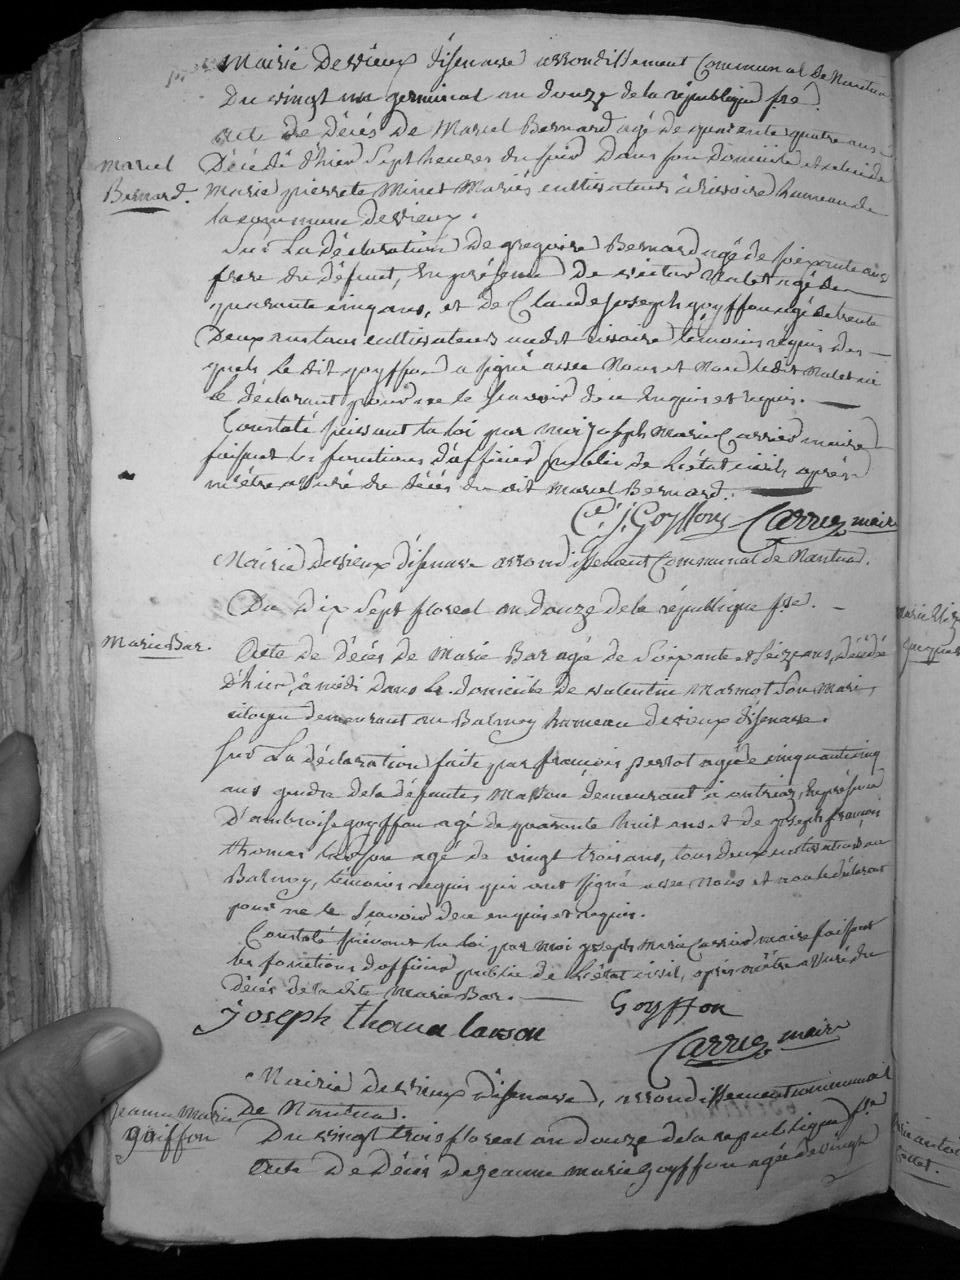 Mairie de vieux d'isenave arrondissement Communal de Nantua
Du vingt un germinal an douze de la république fse.
acte de décés de Marcel Bernard agé de quarente quatre ans
Marcel
Bernard.
Décédé d'hier sept heures du soir dans son domicile et celui de
Marie pierrete Minet Mariés cultivateurs à chivoire hameau de
la commune de vieux.
Sur La déclaration de gregoire Bernard agé de soixante ans
frere du défunt, En présence de victor Nalet agé de
quarante cinq ans, et de Claude Joseph goyffon agé de trente
Deux ans tous cultivateurs audit temoins requis des
quels le dit goyffon a signé avec Nous et Non ledit Nalet ni
le déclarant pour ne le scavoir de ce Enquis et requis.
Constaté suivant la loi par moi Joseph Marie Carrier maire
faisant les fonctions d'officier public de L'état civil, après
m'être assuré du décés du dit Marcel Bernard.
Cde. J. Goyffon Carrier maire
Mairie de vieux d'isenave arrondissement Communal de Nantua.
Du dix sept floreal an douze de la république fse.
Marie Bar.
Acte de décés de Marie Bar agé de soixante et seize ans, décédé
D'hier, à midi dans le domicile de valentin Marmot son mari,
citoyen demeurant au Balmey hameau de vieux d'isenave.
Sur La déclaration faite par françois perrot agé de cinquante cinq
ans gendre de la défunte, Masson demeurant à antriaz, En présence
D'ambroise goyffon agé de quarante huit ans et de joseph françois
thomas agé de vingt trois ans, tous deux cultivateurs au
Balmey, témoins requis qui ont signé avec Nous et non le déclarant
pour ne le scavoir de ce enquis et requis.
Constaté suivant la loi par moi joseph marie Carrier maire faisant
les fonctions d'officier public de L'état civil, après m'être assuré du
Décés de la dite Marie Bar.
Goyffon
joseph thoma lanson
Carrier maire
Mairie de vieux d'isenave, arrondissement communal
de Nantua.
Jeanne Marie
goiffon
Du vingt trois floreal an douze de la republique fse
Acte de Décés de jeanne marie goyffon agée de vingt